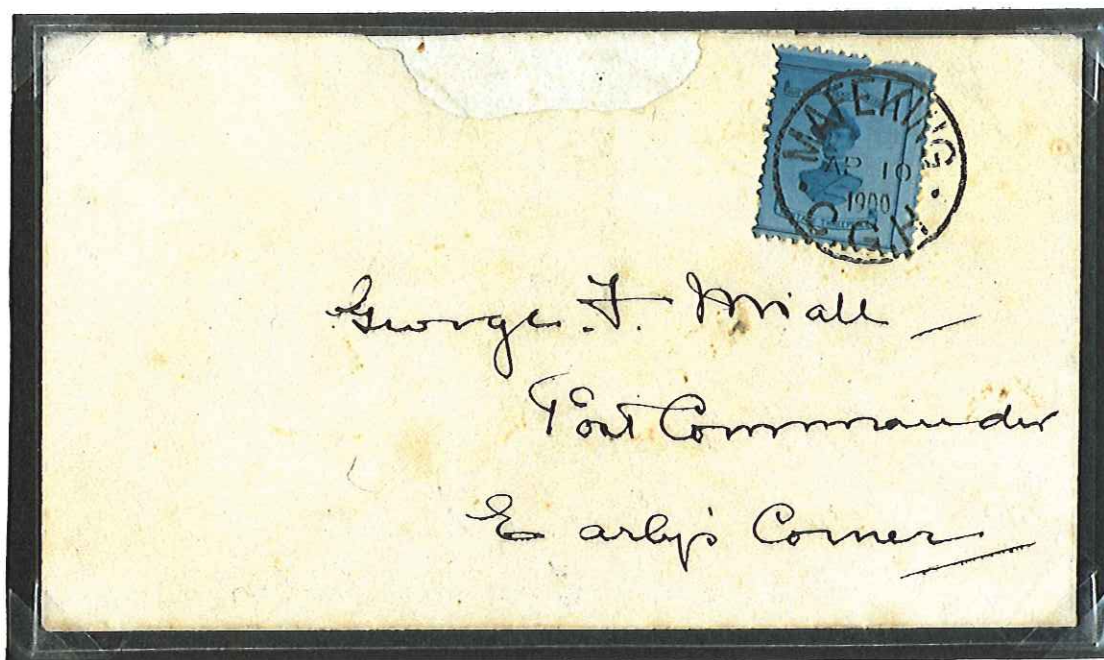 MAFEKING
AP 10
1900
C.G.H.
George. F. Miall
Post Commander
Early's Corner